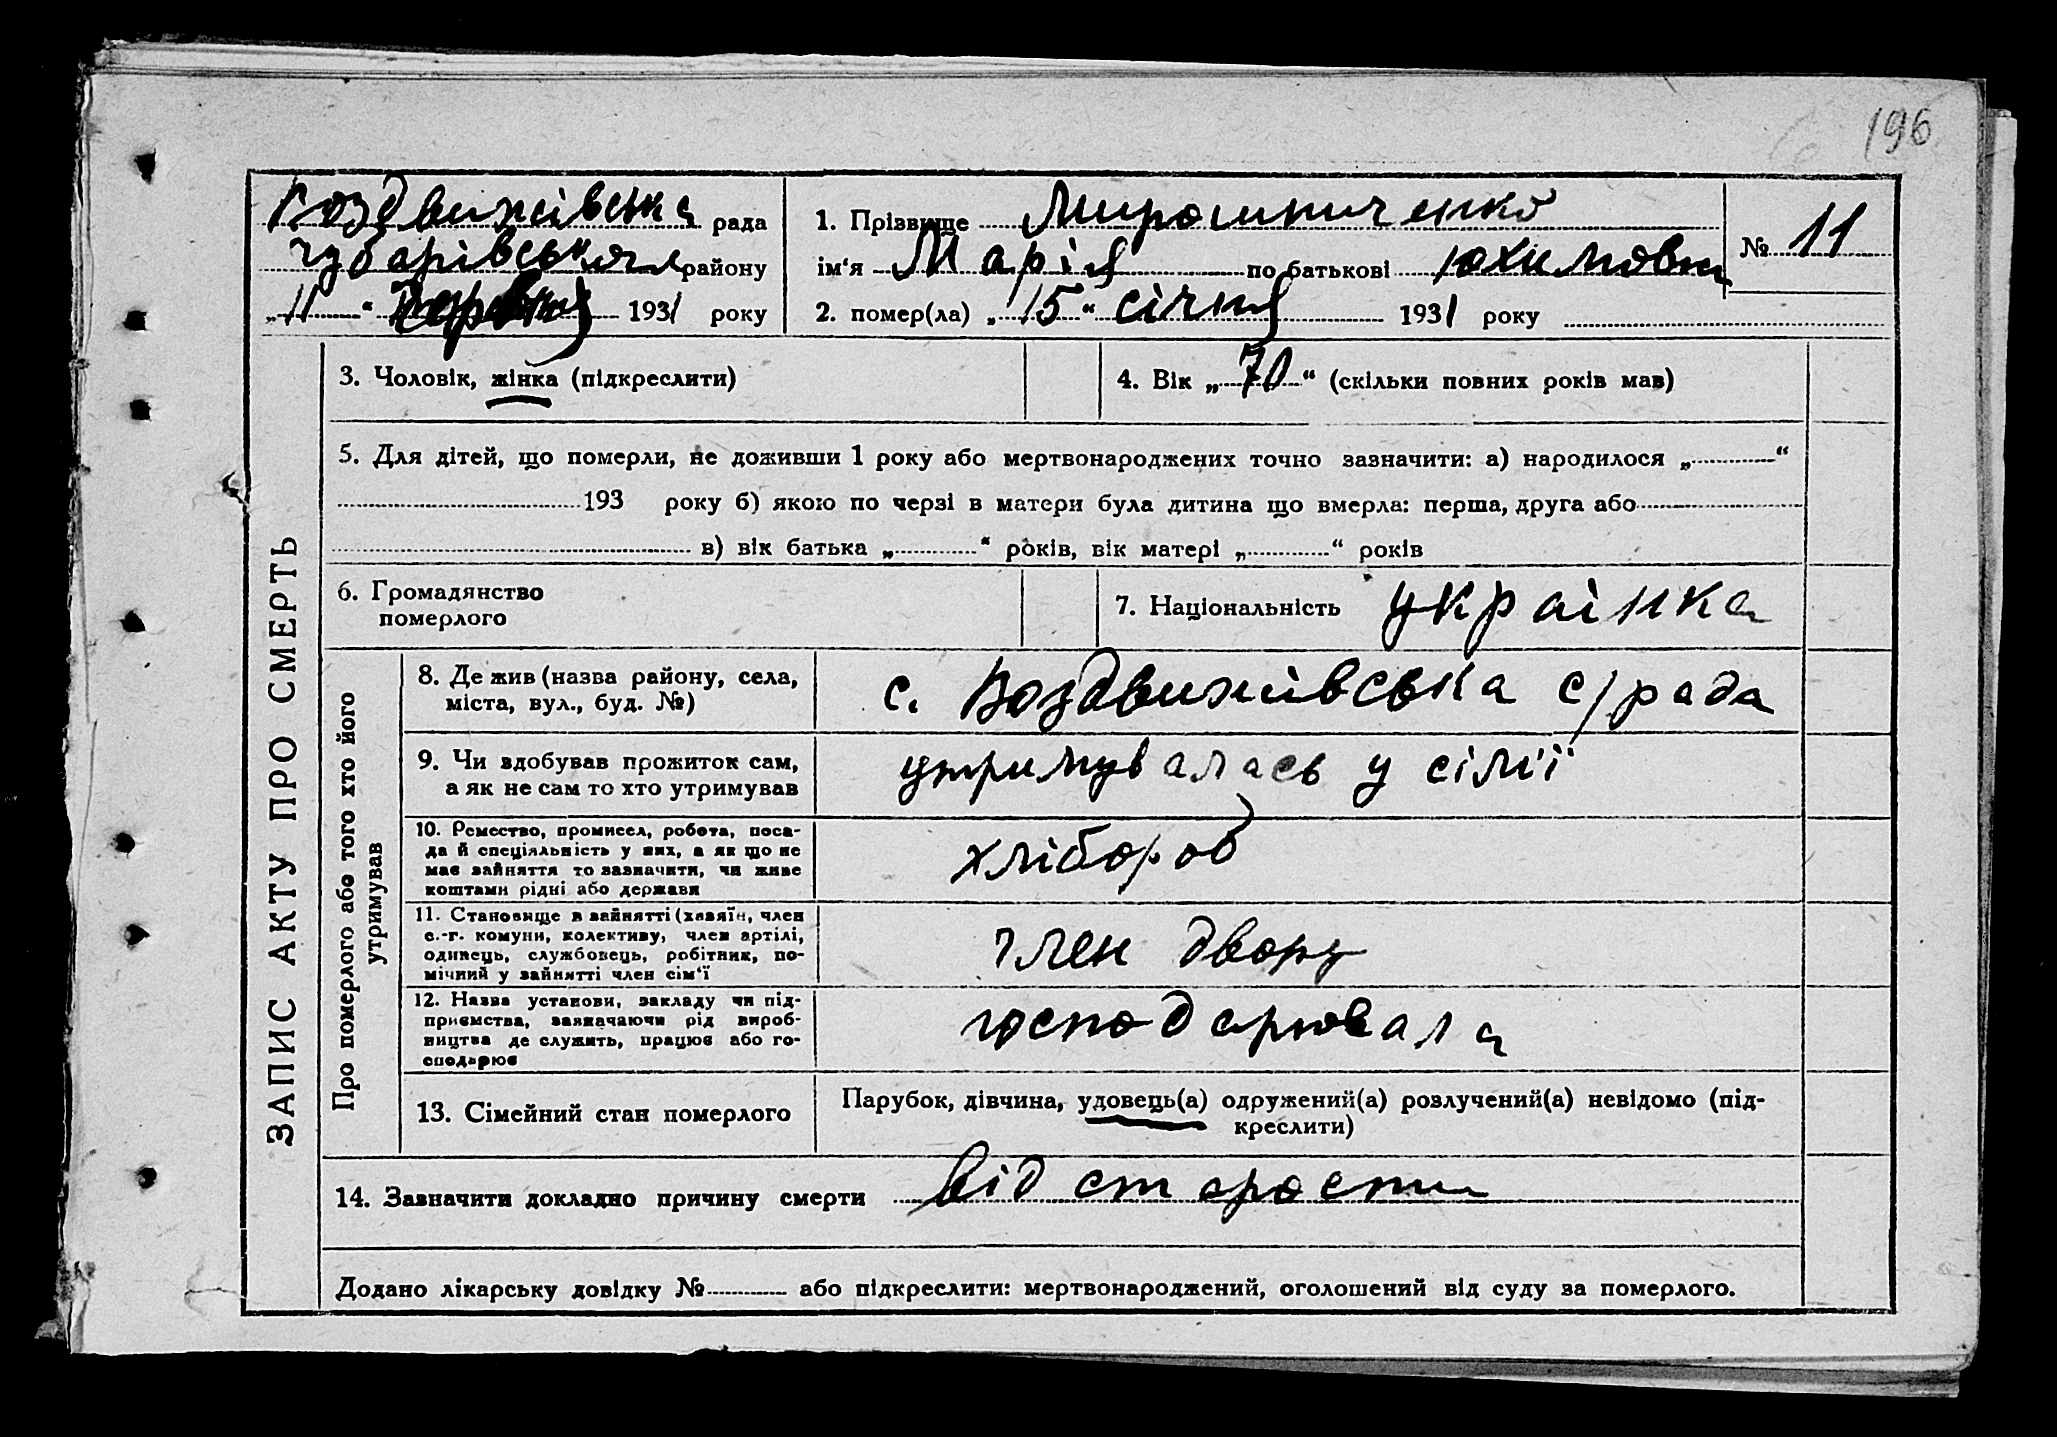 196
Воздвижівська рада
Чубарівського району
„ 11 “ червня 1931 року
1. Прізвище Мирошниченко
ім‘я Марія по батькові Юхимовна
2. помер(ла) „ 15 “ січня 1931 року
№ 11
ЗАПИС АКТУ ПРО СМЕРТЬ
3. Чоловік, жінка (підкреслити)
4. Вік „ 70 “ (скільки повних років мав)
5. Для дітей, що померли, не доживши 1 року або мертвонароджених точно зазначити: а) народилося „ “
193 року б) якою по черзі в матери була дитина що вмерла: перша, друга або
в) вік батька „ “ років, вік матері „ “ років
6. Громадянство
померлого
7. Національність українка
Про померлого або того хто його
утримував
8. Де жив (назва району, села,
міста, вул., буд. №)
с. Воздвижівська с/рада
9. Чи здобував прожиток сам,
а як не сам то хто утримував
утримувалась у сімї
10. Ремество, промисел, робота, поса-
да й спеціяльність у них, а як що не
має зайняття то зазначити, чи живе
коштами рідні або держави
хлібороб
11. Становище в зайнятті (хазяїн, член
с.-г. комуни, колективу, член артілі,
одинець, службовець, робітник, по-
мічний у зайнятті член сім‘ї
член двору
12. Назва установи, закладу чи під-
приємства, зазначаючи рід вироб-
ництва де служить, працює або го-
сподарює
господарювала
13. Сімейний стан померлого
Парубок, дівчина, удовець(а) одружений(а) розлучений(а) невідомо (під-
креслити)
14. Зазначити докладно причину смерти від старости
Додано лікарську довідку № або підкреслити: мертвонароджений, оголошений від суду за померлого.